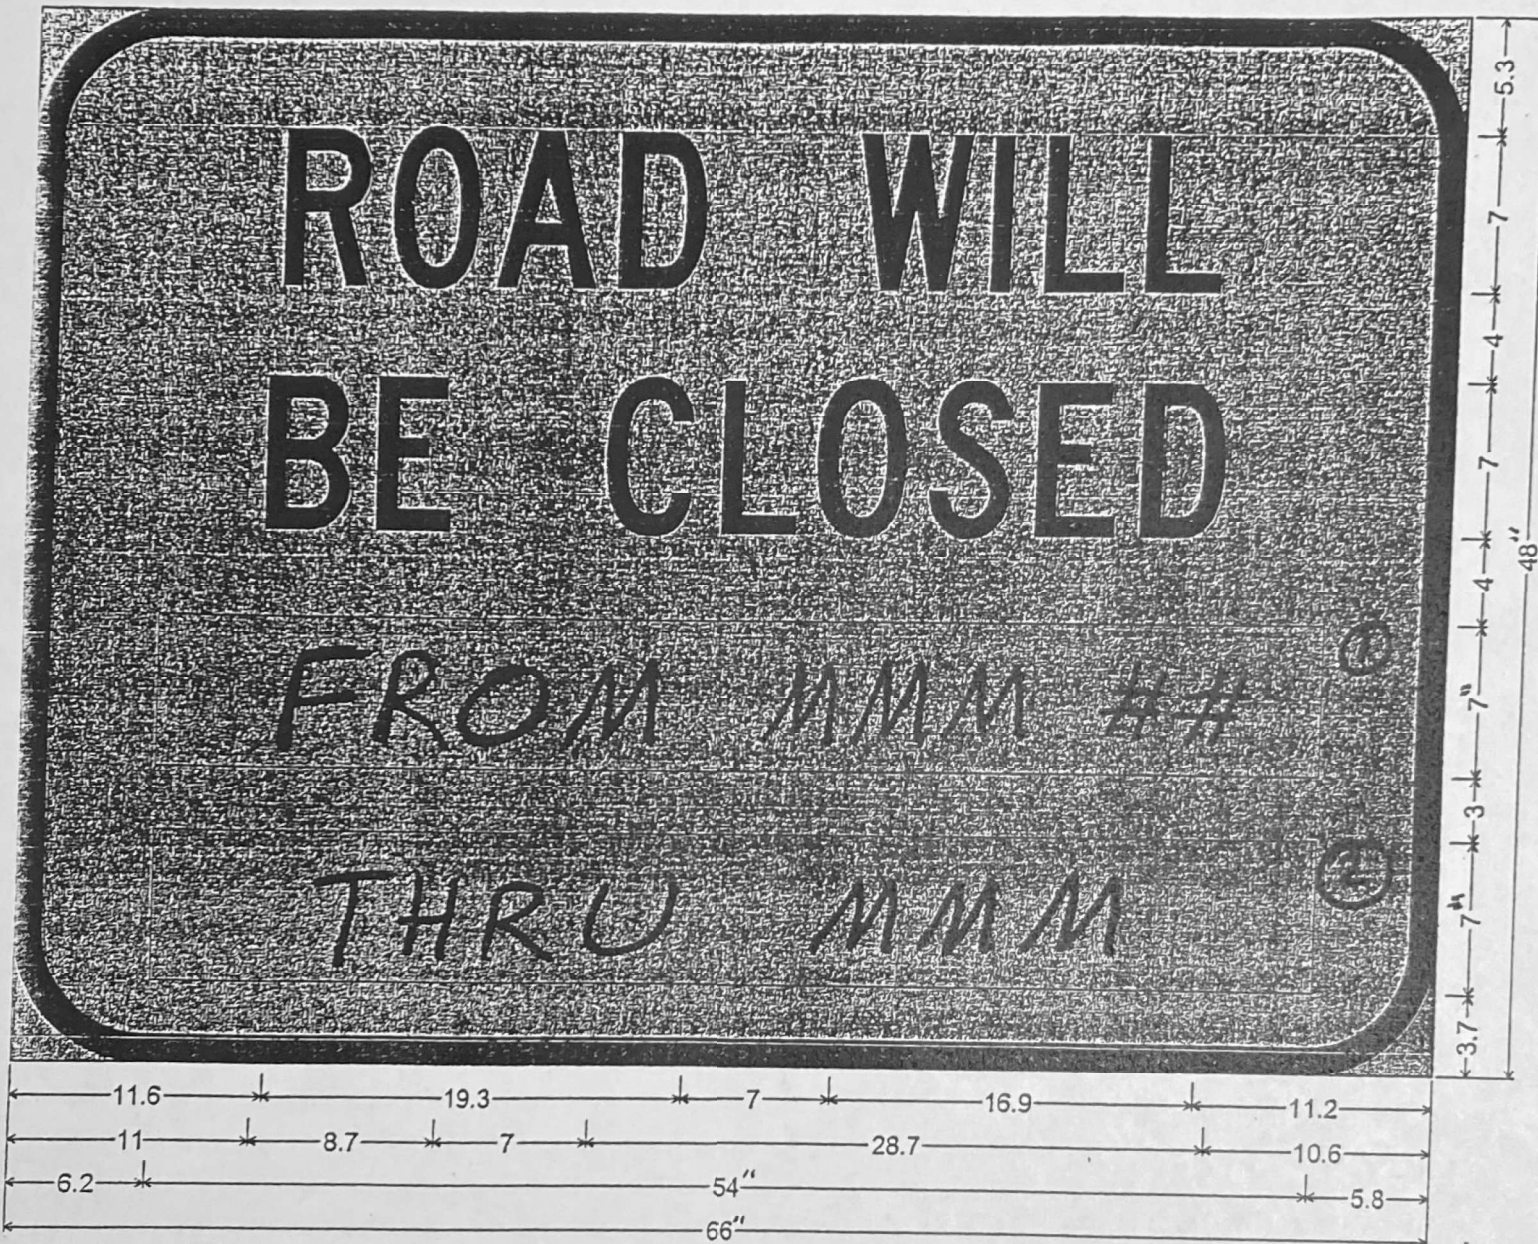 ROAD WILL
BE CLOSED
FROM MMM ## ①
THRU MMM ②
5.3
7
4
7
4
7"
3
7"
3.7
48"
11.6 19.3 7 16.9 11.2
11 8.7 7 28.7 10.6
6.2 54" 5.8
66"